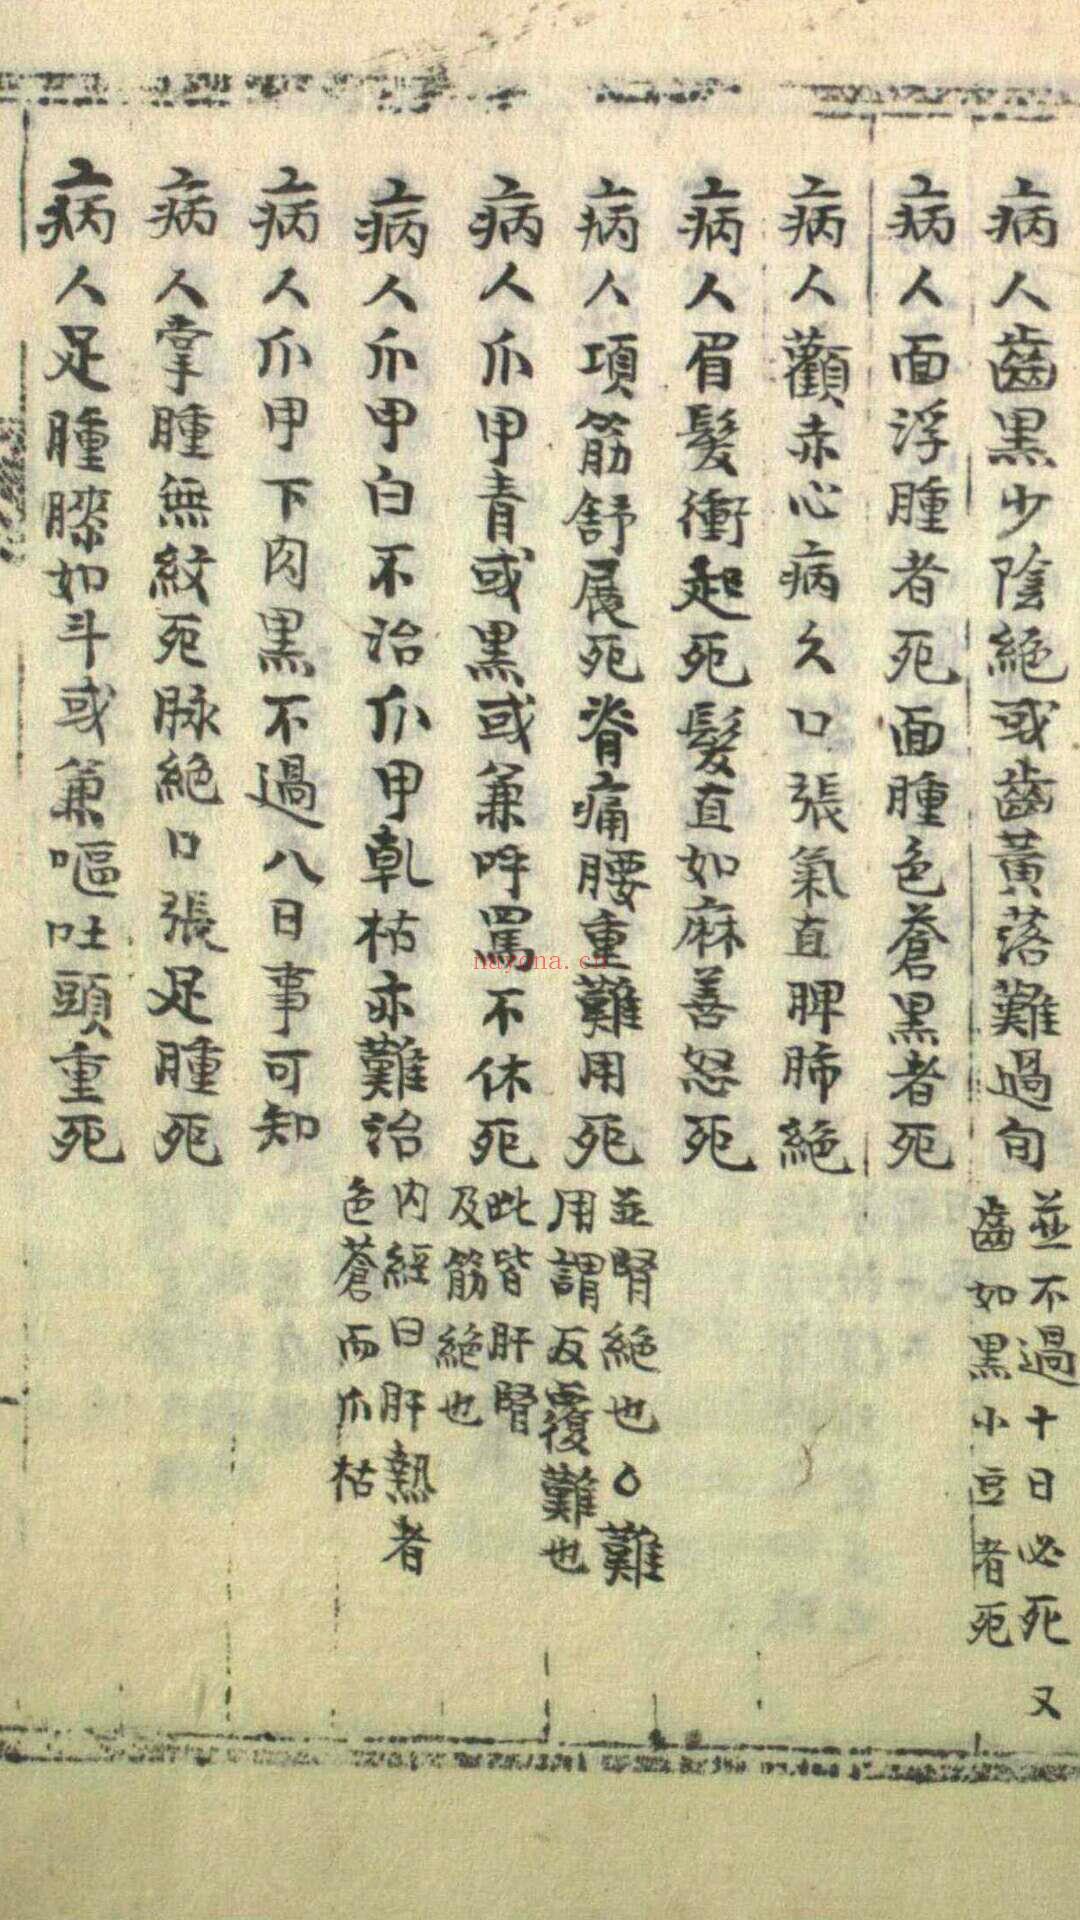 病人齒黑少陰絕或齒黃落難過旬
並不過十日必死又
齒如黑小豆者死
病人面浮腫者死面腫色蒼黑者死
病人顴赤心病久口張氣直脾肺絕
病人眉髮衝起死髮直如麻善怒死
病人項筋舒展死脊痛腰重難用死
並腎絕也〇難
用謂反覆難也
病人爪甲青或黑或兼呼罵不休死
此皆肝腎
及筋絕也
病人爪甲白不治爪甲乾枯亦難治
內經曰肝熱者
色蒼而爪枯
病人爪甲下肉黑不過八日事可知
病人掌腫無紋死脉絕口張足腫死
病人足腫膝如斗或兼嘔吐頭重死
nayona.cn